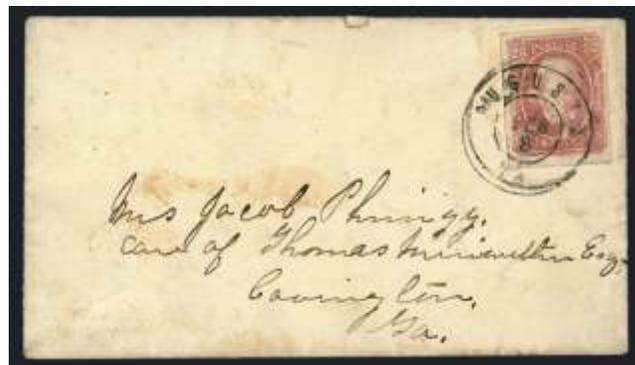 AUGUSTA
8
GA
Mrs Jacob Phinizy,
care of Thomas Meriwether Esq
Covington,
Ga.